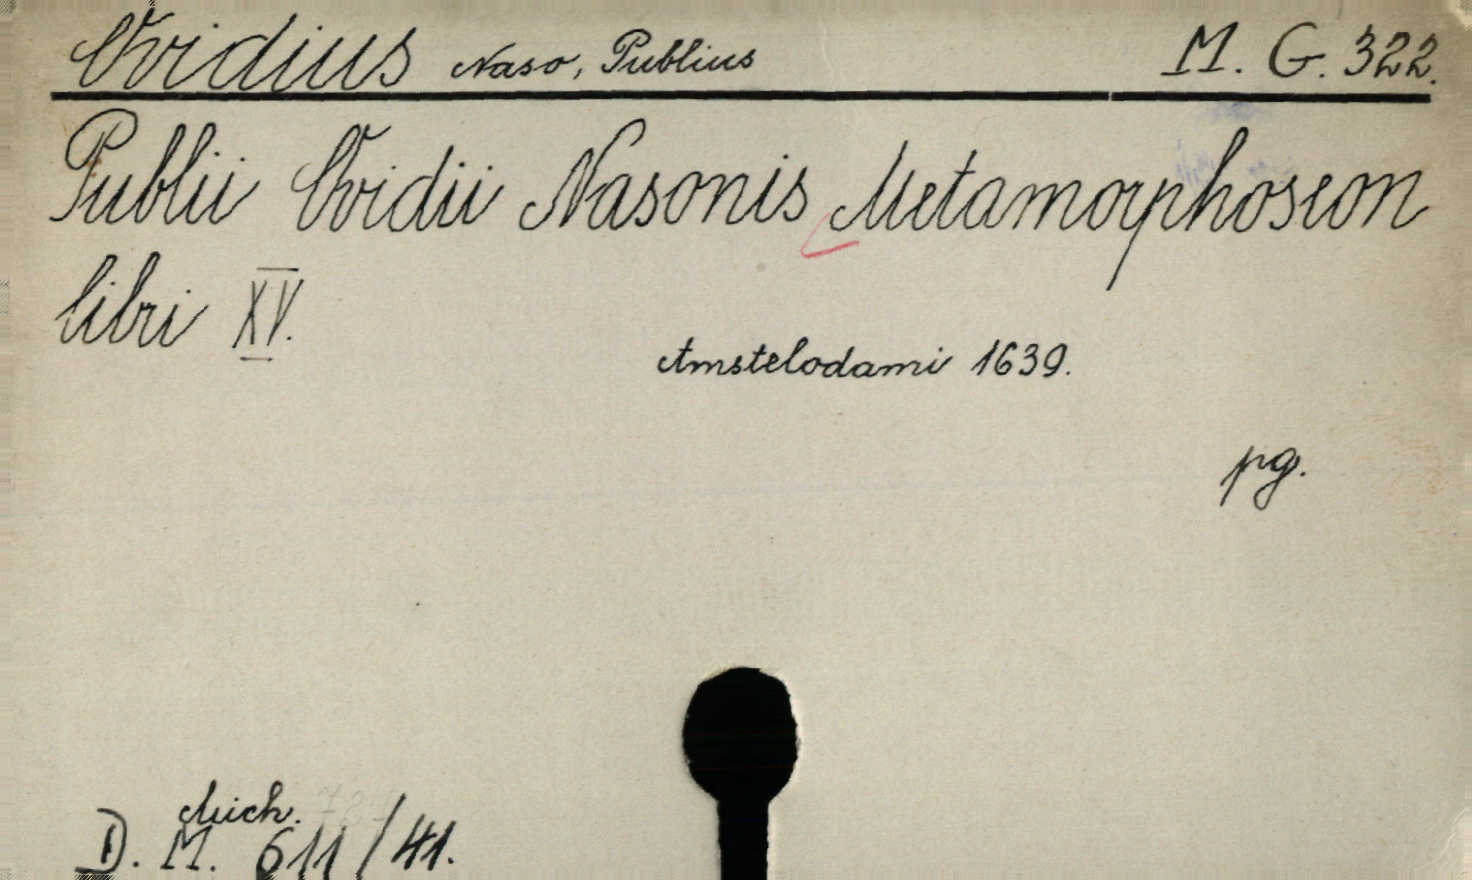 Ovidius Naso, Publius M. G. 322.
Publii Ovidii Nasonis Metamorphoseon
libri XV.
Amstelodami 1639.
pg.
Mich.
D. M. 611/41.